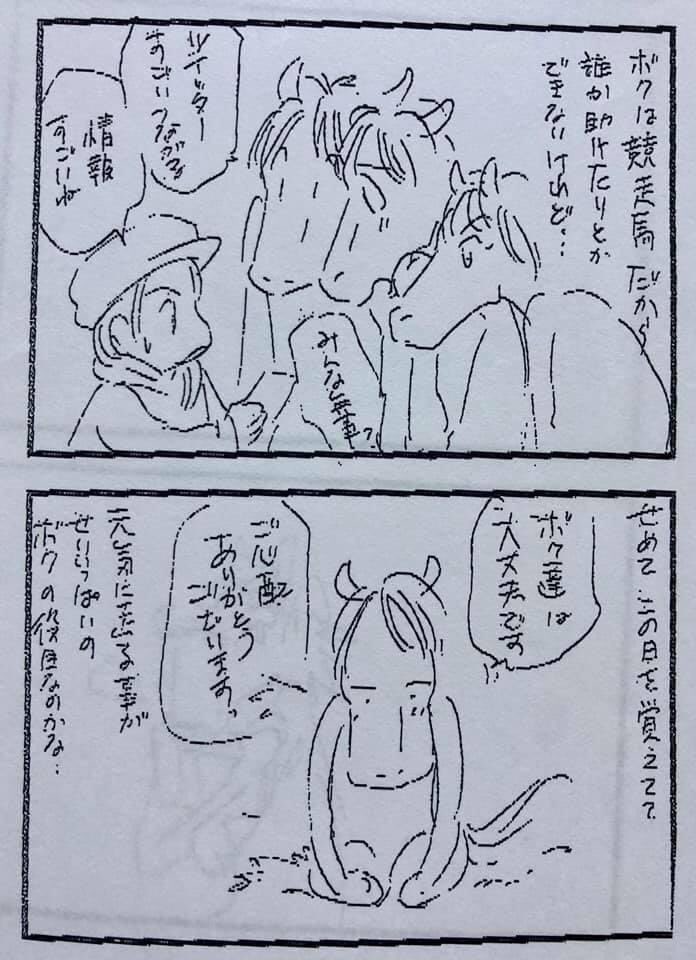 ボクは競走馬だから
誰か助けたりとか
できないけれど…
ツイッター
すごいつながる
情報
すごいね
みんな無事?
せめてこの日を覚えてて
ボク達は
大丈夫です
ご心配
ありがとう
ございます。
元気に走る事が
せいいっぱいの
ボクの役目なのかな…